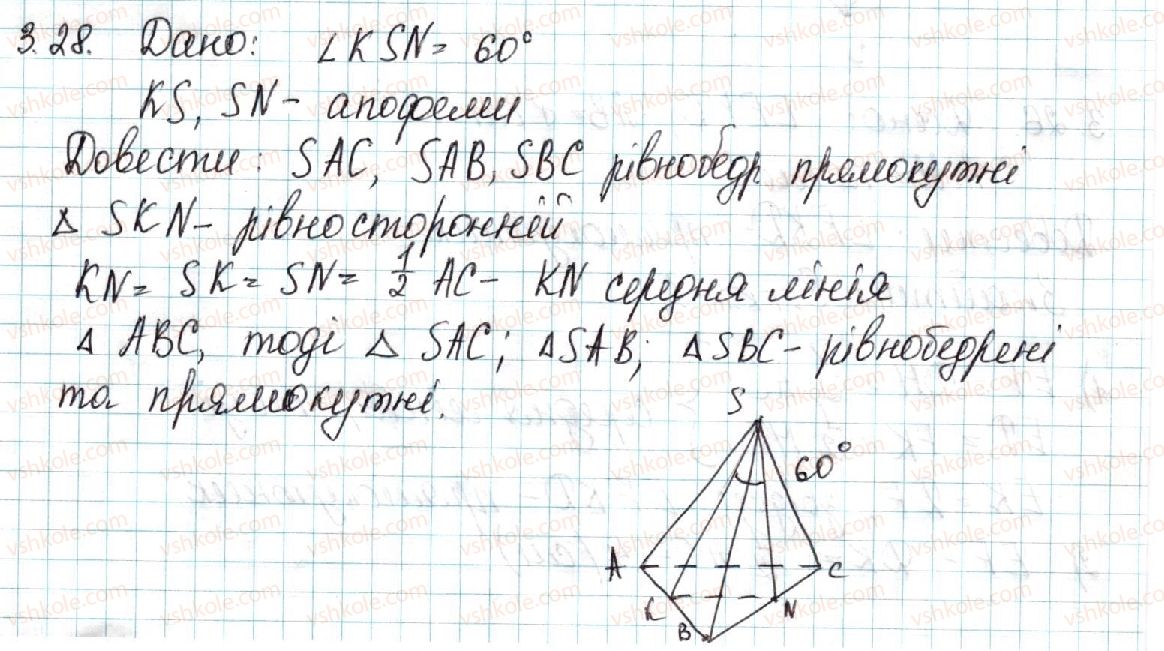 3.28. Дано: ∠KSN = 60°
KS, SN – апофеми
Довести: SAC, SAB, SBC рівнобедр. прямокутні
Δ SKN – рівносторонній
KN = SK = SN = 1/2 AC – KN середня лінія
Δ ABC, тоді Δ SAC; ΔSAB; ΔSBC – рівнобедрені
та прямокутні.
S
60°
A
C
K
N
B
vshkole.com